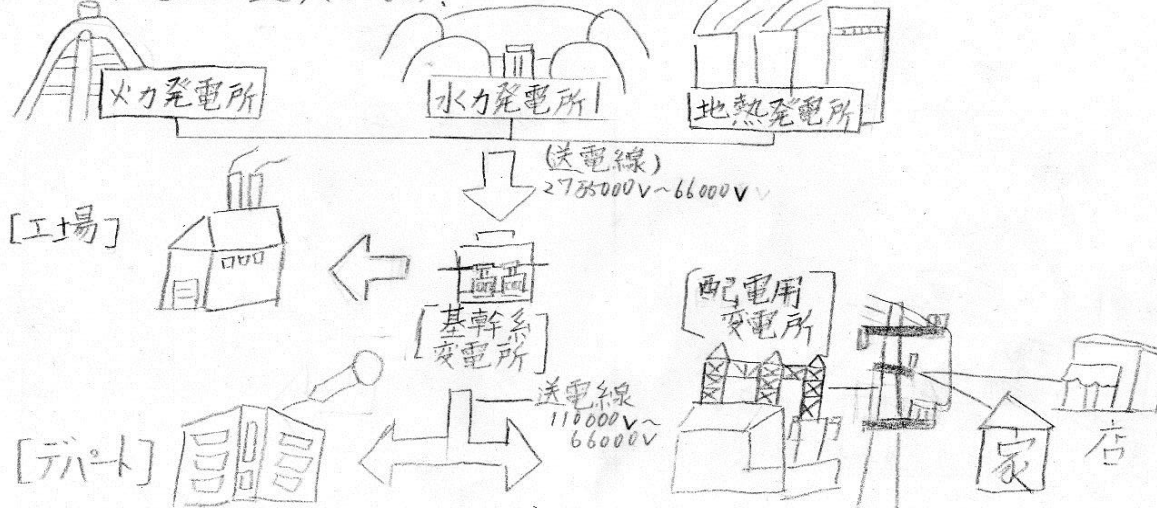 火力発電所
水力発電所
地熱発電所
(送電線)
275000v~66000v
[工場]
[基幹系
変電所]
[配電用
変電所]
送電線
110000v~
66000v
[デパート]
家
店